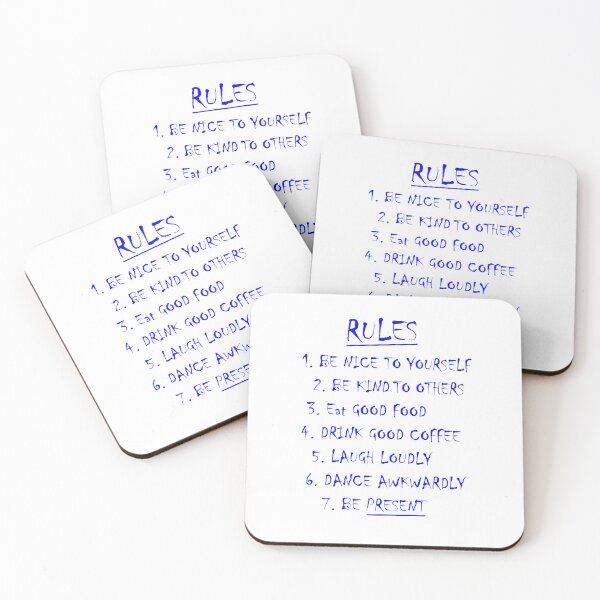 RULES
1. BE NICE TO YOURSELF
2. BE KIND TO OTHERS
3. Eat GOOD FOOD
COFFEE
RULES
1. BE NICE TO YOURSELF
2. BE KIND TO OTHERS
3. Eat GOOD FOOD
4. DRINK GOOD COFFEE
5. LAUGH LOUDLY
RULES
1. BE NICE TO YOURSELF
2. BE KIND TO OTHERS
3. Eat GOOD FOOD
4. DRINK GOOD COFFEE
5. LAUGH LOUDLY
6. DANCE
7. BE
RULES
1. BE NICE TO YOURSELF
2. BE KIND TO OTHERS
3. Eat GOOD FOOD
4. DRINK GOOD COFFEE
5. LAUGH LOUDLY
6. DANCE AWKWARDLY
7. BE PRESENT